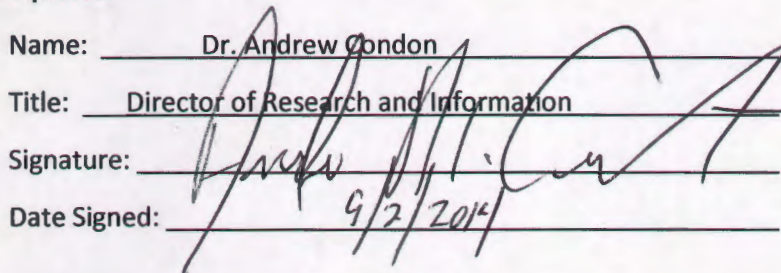 Name: Dr. Andrew Condon
Title: Director of Research and Information
Signature:
Date Signed: 9/2/2014